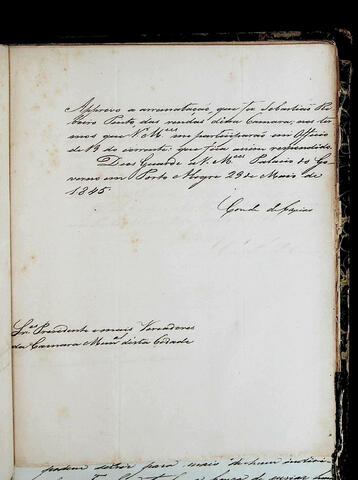 Approvo a arrematação, que fez Sebastião Ri-
beiro Pinto das rendas dessa Camara, nos ter-
mos que V. M.ces me participarão em Officio
de 13 do corrente: que fica assim respondido.
Deos Guarde a V. M.ces Palacio do Go-
verno em Porto Alegre 23 de Maio de
1845.
Conde de Caxias
Snr.es Presidente e mais Vereadores
da Camara Mun.al desta Cidade
podem para mais